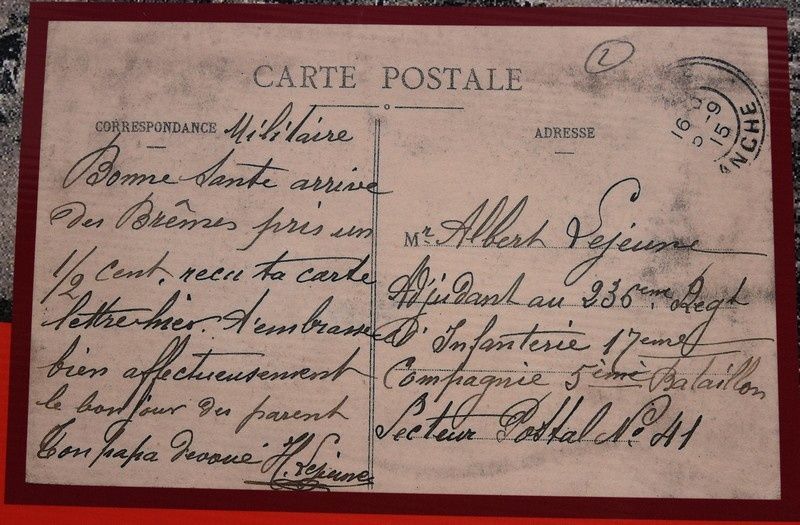 2
CARTE POSTALE
CORRESPONDANCE Militaire
Bonne Sante arrive
des Brêmes pris un
1/2 cent. recu ta carte
lettre hier. t'embrasse
bien affectueusement
le bonjour des parent
Ton papa devoué H. Lejeune
ADRESSE
Mr Albert Lejeune
Adjudant au 236eme Regt
d'Infanterie 17eme
Compagnie 5ème Bataillon
Secteur Postal No 41
16
5-9
15
ANCHE